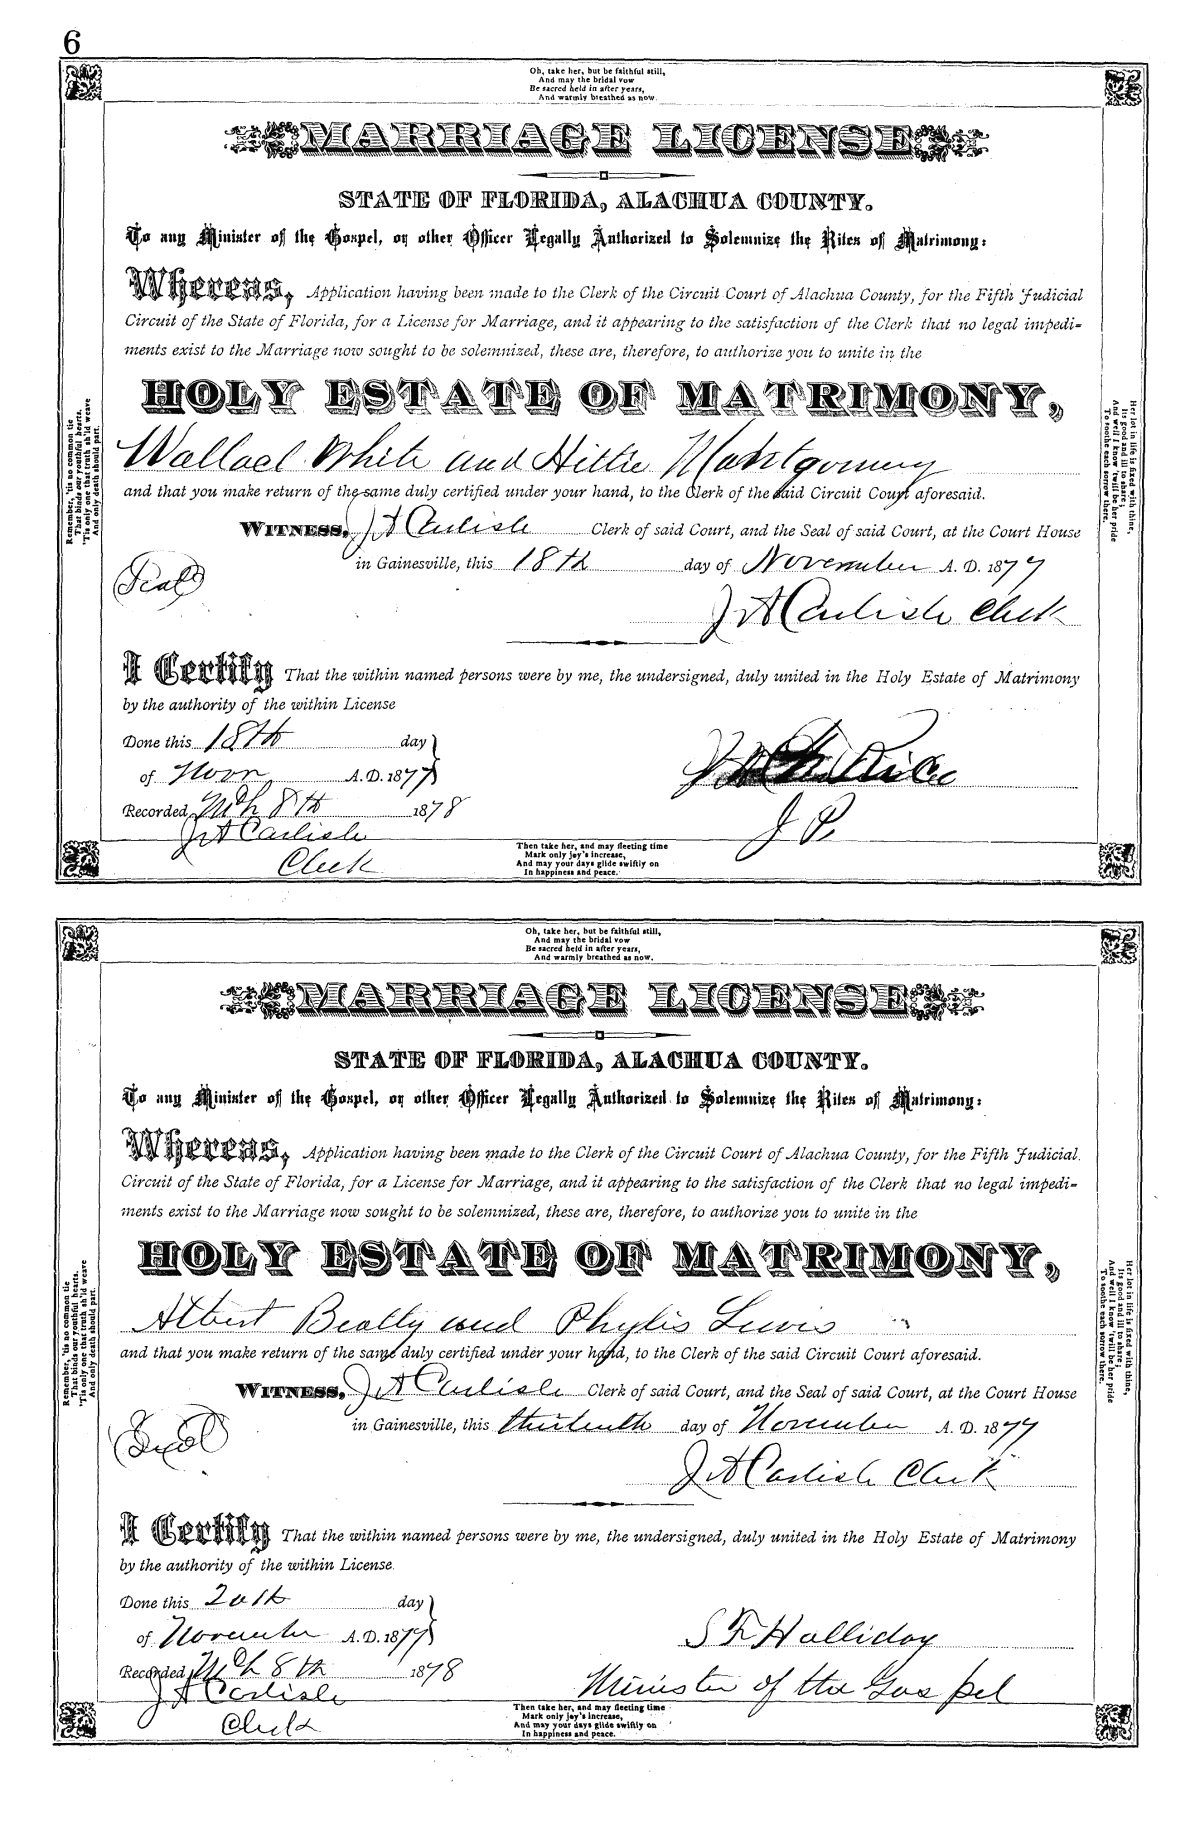 6
Oh, take her, but be faithful still,
And may the bridal vow
Be sacred held in after years,
And warmly breathed as now.
MARRIAGE LICENSE
STATE OF FLORIDA, ALACHUA COUNTY.
To any Minister of the Gospel, or other Officer Legally Authorized to Solemnize the Rites of Matrimony:
Whereas, Application having been made to the Clerk of the Circuit Court of Alachua County, for the Fifth Judicial
Circuit of the State of Florida, for a License for Marriage, and it appearing to the satisfaction of the Clerk that no legal impedi-
ments exist to the Marriage now sought to be solemnized, these are, therefore, to authorize you to unite in the
HOLY ESTATE OF MATRIMONY,
Wallace White and Hittie Montgomery
and that you make return of the same duly certified under your hand, to the Clerk of the said Circuit Court aforesaid.
WITNESS, J A Carlisle Clerk of said Court, and the Seal of said Court, at the Court House
in Gainesville, this 18th day of November A. D. 1877
Seal
J A Carlisle Clerk
I Certify That the within named persons were by me, the undersigned, duly united in the Holy Estate of Matrimony
by the authority of the within License
Done this 18th day
of Novr A.D. 1877
Recorded Mch 8th 1878
J A Carlisle
Clerk
J P.
Remember, 'tis no common tie
That binds our youthful hearts,
'Tis only one that truth sh'ld weave
And only death should part.
Her lot in life is fixed with thine,
Its good and ill to share;
And well I know 'twill be her pride
To soothe each sorrow there.
Then take her, and may fleeting time
Mark only joy's increase,
And may your days glide swiftly on
In happiness and peace.
Oh, take her, but be faithful still,
And may the bridal vow
Be sacred held in after years,
And warmly breathed as now.
MARRIAGE LICENSE
STATE OF FLORIDA, ALACHUA COUNTY.
To any Minister of the Gospel, or other Officer Legally Authorized to Solemnize the Rites of Matrimony:
Whereas, Application having been made to the Clerk of the Circuit Court of Alachua County, for the Fifth Judicial
Circuit of the State of Florida, for a License for Marriage, and it appearing to the satisfaction of the Clerk that no legal impedi-
ments exist to the Marriage now sought to be solemnized, these are, therefore, to authorize you to unite in the
HOLY ESTATE OF MATRIMONY,
Albert Beatty and Phylis Lewis
and that you make return of the same duly certified under your hand, to the Clerk of the said Circuit Court aforesaid.
WITNESS, J A Carlisle Clerk of said Court, and the Seal of said Court, at the Court House
in Gainesville, this thirteenth day of November A. D. 1877
Seal
J A Carlisle Clerk
I Certify That the within named persons were by me, the undersigned, duly united in the Holy Estate of Matrimony
by the authority of the within License.
Done this 20th day
of November A.D. 1877
S F Halliday
Recorded Mch 8th 1878
Minister of the Gospel
J A Carlisle
Clerk
Remember, 'tis no common tie
That binds our youthful hearts,
'Tis only one that truth sh'ld weave
And only death should part.
Her lot in life is fixed with thine,
Its good and ill to share;
And well I know 'twill be her pride
To soothe each sorrow there.
Then take her, and may fleeting time
Mark only joy's increase,
And may your days glide swiftly on
In happiness and peace.